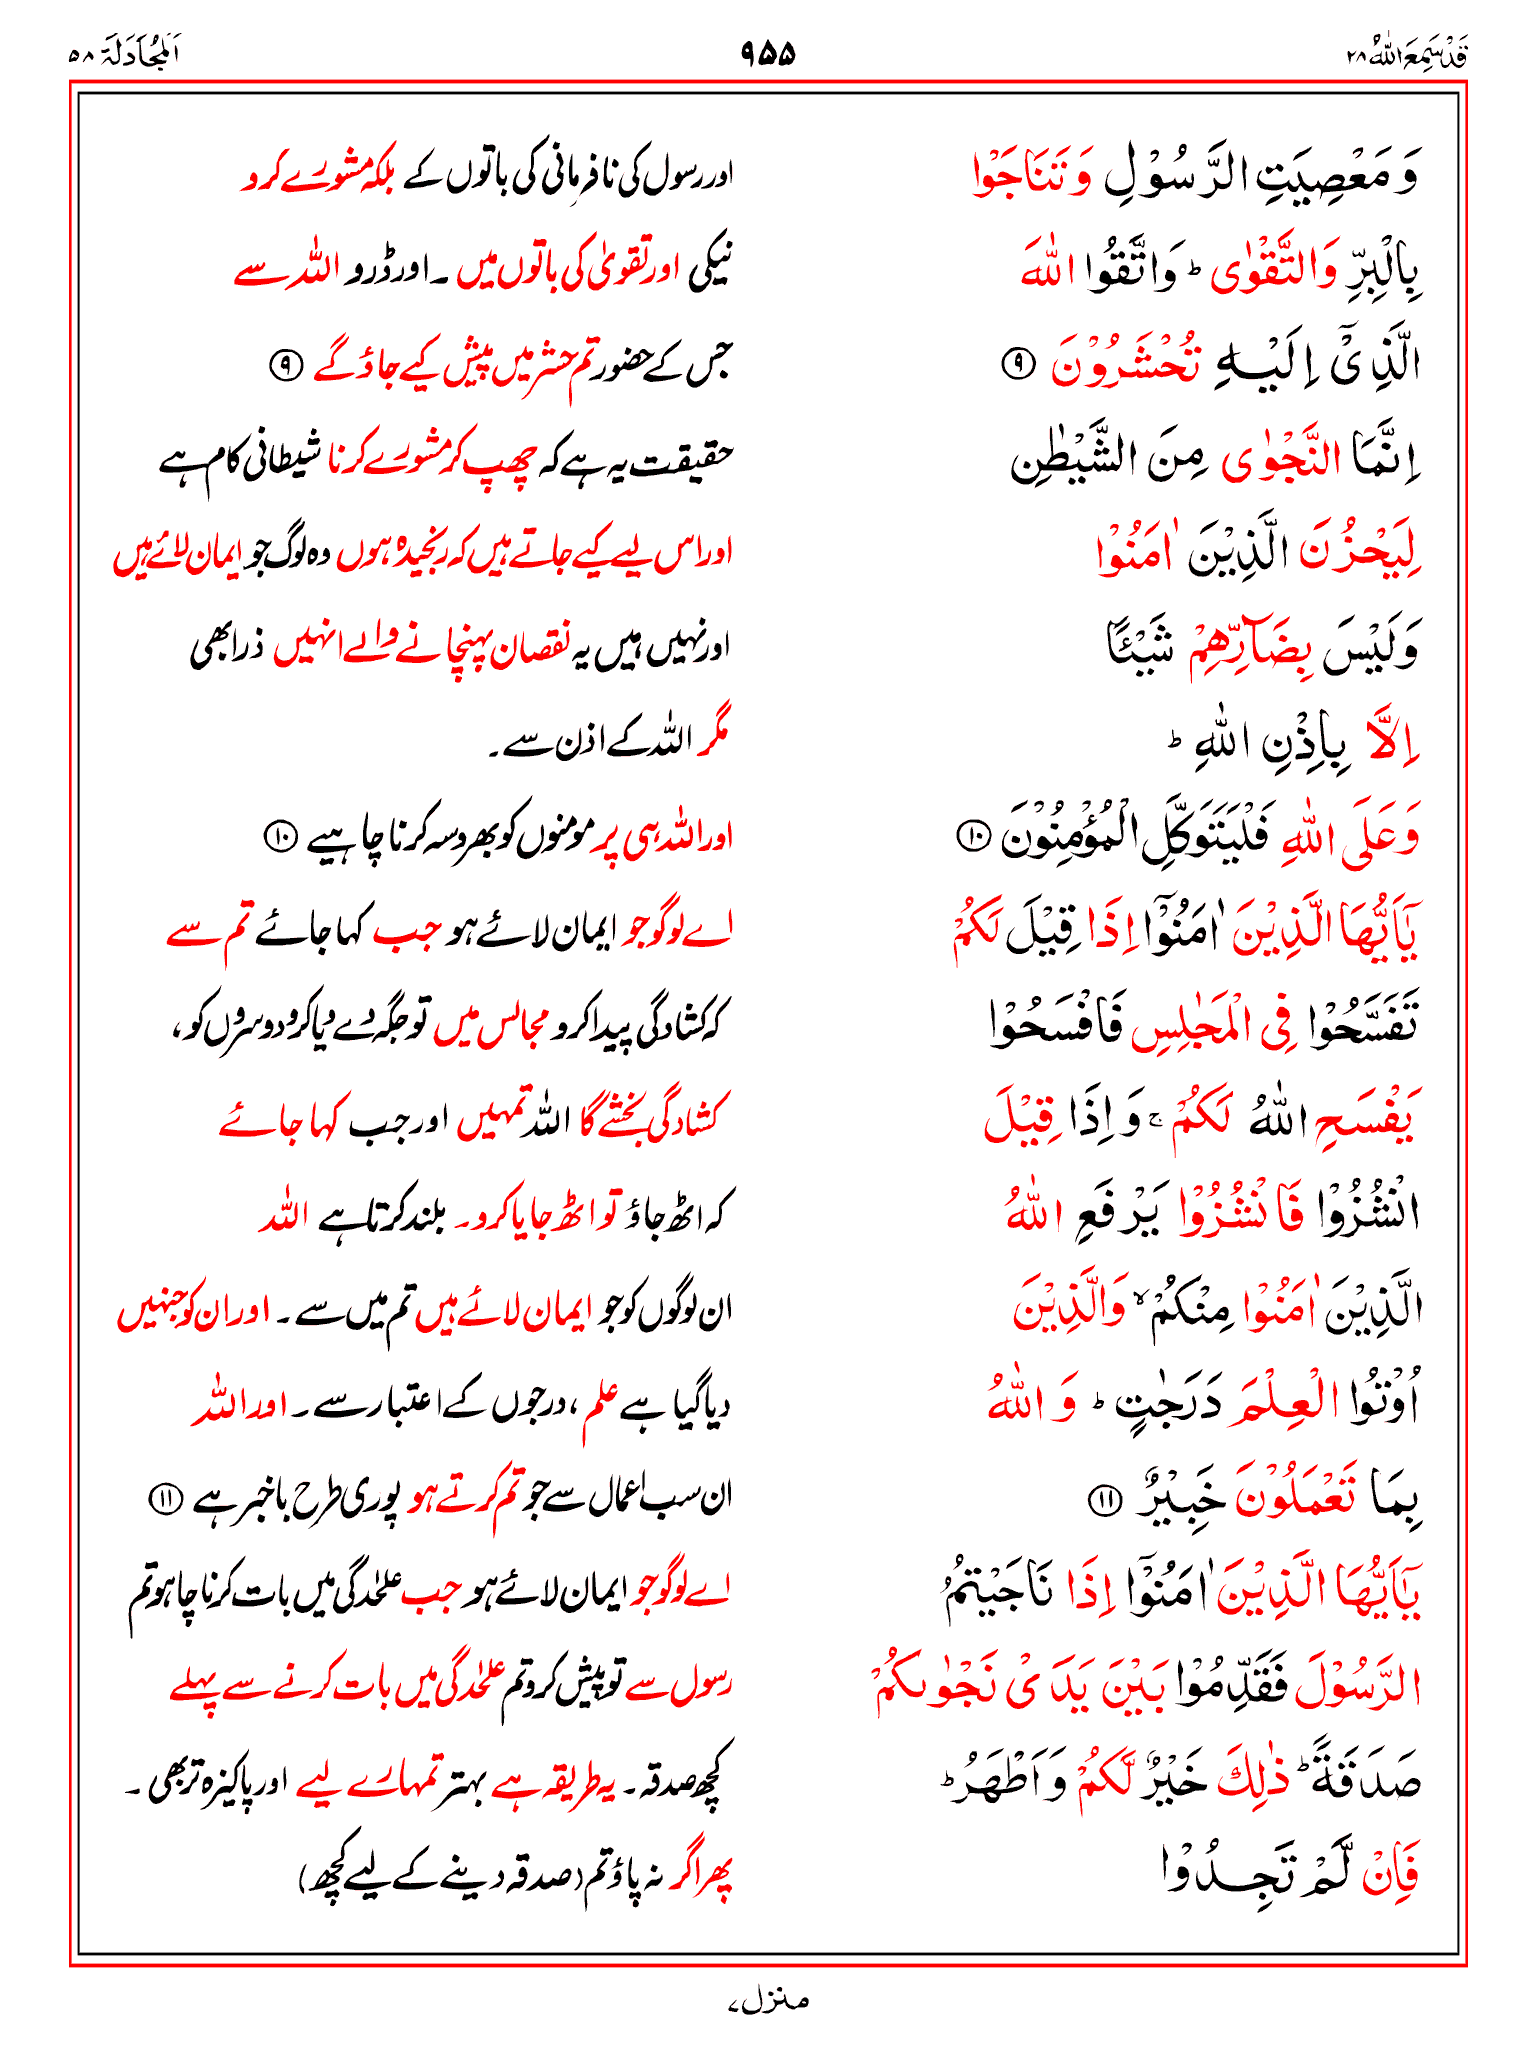 قَدْسَمِعَ اللّٰهُ ۲۸ ۹۵۵ اَلْمُجَادَلَة ۵۸
وَ مَعْصِيَتِ الرَّسُوْلِ وَ تَنَاجَوْا اور رسول کی نافرمانی کی باتوں کے بلکہ مشورے کرو
بِالْبِرِّ وَالتَّقْوٰى ؕ وَاتَّقُوا اللّٰهَ نیکی اور تقویٰ کی باتوں میں ۔ اور ڈرو اللہ سے
الَّذِىْۤ اِلَيْهِ تُحْشَرُوْنَ ۹ جس کے حضور تم حشر میں پیش کیے جاؤ گے ۹
اِنَّمَا النَّجْوٰى مِنَ الشَّيْطٰنِ حقیقت یہ ہے کہ چھپ کر مشورے کرنا شیطانی کام ہے
لِيَحْزُنَ الَّذِيْنَ اٰمَنُوْا اور اس لیے کیے جاتے ہیں کہ رنجیدہ ہوں وہ لوگ جو ایمان لائے ہیں
وَلَيْسَ بِضَآرِّهِمْ شَيْئًا اور نہیں ہیں یہ نقصان پہنچانے والے انہیں ذرا بھی
اِلَّا بِاِذْنِ اللّٰهِ ؕ مگر اللہ کے اذن سے ۔
وَعَلَى اللّٰهِ فَلْيَتَوَكَّلِ الْمُؤْمِنُوْنَ ۱۰ اور اللہ ہی پر مومنوں کو بھروسہ کرنا چاہیے ۱۰
يٰۤاَيُّهَا الَّذِيْنَ اٰمَنُوْۤا اِذَا قِيْلَ لَكُمْ اے لوگو جو ایمان لائے ہو جب کہا جائے تم سے
تَفَسَّحُوْا فِى الْمَجٰلِسِ فَافْسَحُوْا کہ کشادگی پیدا کرو مجالس میں تو جگہ دے دیا کرو دوسروں کو ،
يَفْسَحِ اللّٰهُ لَكُمْ ۚ وَ اِذَا قِيْلَ کشادگی بخشے گا اللہ تمہیں اور جب کہا جائے
انْشُزُوْا فَانْشُزُوْا يَرْفَعِ اللّٰهُ کہ اٹھ جاؤ تو اٹھ جایا کرو ۔ بلند کرتا ہے اللہ
الَّذِيْنَ اٰمَنُوْا مِنْكُمْ ۙ وَالَّذِيْنَ ان لوگوں کو جو ایمان لائے ہیں تم میں سے ۔ اور ان کو جنہیں
اُوْتُوا الْعِلْمَ دَرَجٰتٍ ؕ وَ اللّٰهُ دیا گیا ہے علم ، درجوں کے اعتبار سے ۔ اور اللہ
بِمَا تَعْمَلُوْنَ خَبِيْرٌ ۱۱ ان سب اعمال سے جو تم کرتے ہو پوری طرح باخبر ہے ۱۱
يٰۤاَيُّهَا الَّذِيْنَ اٰمَنُوْۤا اِذَا نَاجَيْتُمُ اے لوگو جو ایمان لائے ہو جب علحٰدگی میں بات کرنا چاہو تم
الرَّسُوْلَ فَقَدِّمُوْا بَيْنَ يَدَىْ نَجْوٰىكُمْ رسول سے تو پیش کرو تم علحٰدگی میں بات کرنے سے پہلے
صَدَقَةً ؕ ذٰلِكَ خَيْرٌ لَّكُمْ وَ اَطْهَرُ ؕ کچھ صدقہ ۔ یہ طریقہ ہے بہتر تمہارے لیے اور پاکیزہ تر بھی ۔
فَاِنْ لَّمْ تَجِدُوْا پھر اگر نہ پاؤ تم (صدقہ دینے کے لیے کچھ)
منزل ۷